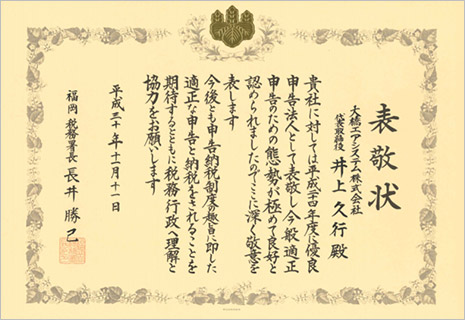 表敬状
大橋エアシステム株式会社
代表取締役 井上久行殿
貴社に対しては平成二十四年度に優良
申告法人として表敬し今般適正
申告のための態勢が極めて良好と
認められましたのでここに深く敬意を
表します
今後とも申告納税制度の趣旨に即した
適正な申告と納税をされることを
期待するとともに税務行政へ理解と
協力をお願いします
平成三十年十月十一日
福岡税務署長 長井勝己